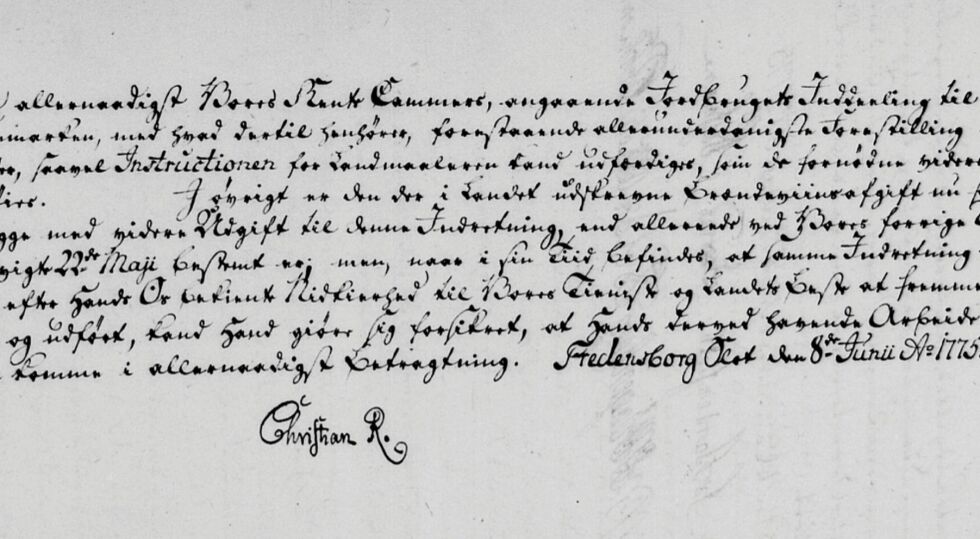 allernaadigst Vores Rente Cammers, angaaende Jordbrugets Inddeeling til
emarken, med hvad dertil henhører, forestaaende allerunderdanigste Forestilling
er, saavel Instructionen for Landmaaleren kand udfærdiges, som de fornødne videre
øies. I øvrigt er den der i Landet udskrevne Brændeviinsafgift nu
gge med videre Udgift til denne Indretning, end allerede ved Vores forrige
vigte 22de Maji bestemt er; men, naar i sin Tiid befindes, at samme Indretning
efter Hands Os bekiente Nidkierhed til Vores Tieniste og Landets Beste at fremme
og udført, kand Hand giøre sig forsikret, at Hands derved havende Arbeide
komme i allernaadigst Betragtning. Fredensborg Slot den 8de Junii Ao 1775.
Christian R.